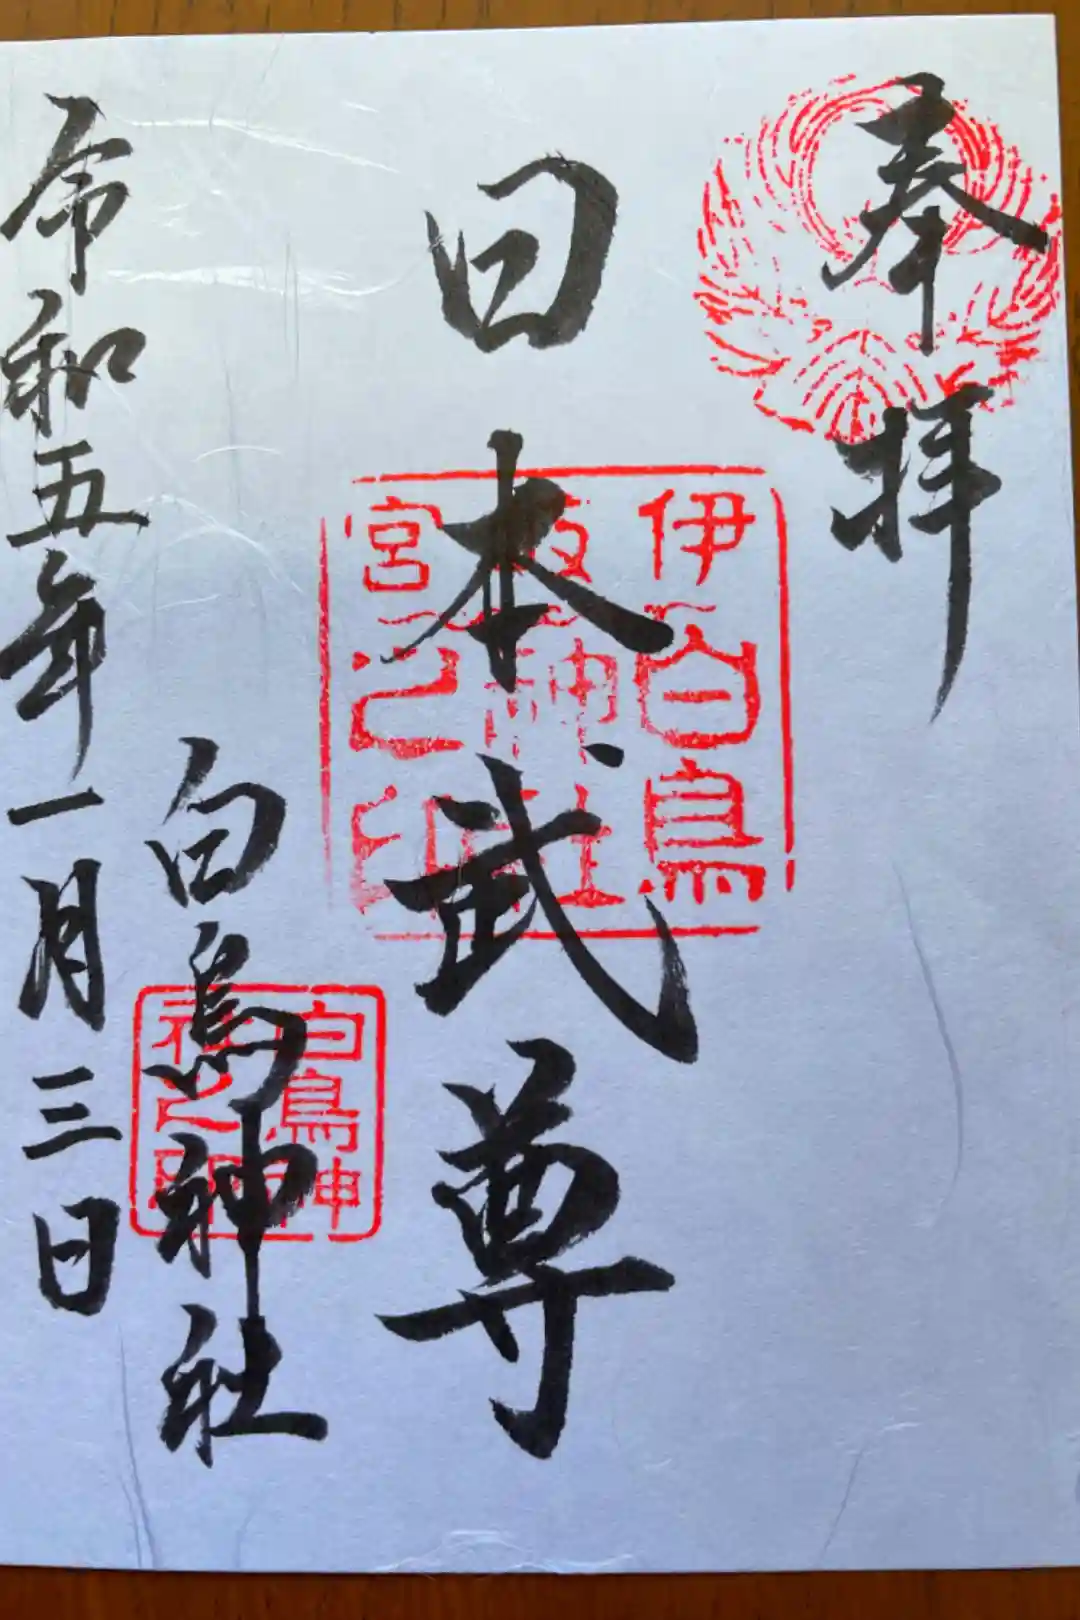 奉拝
日本武尊
伊白鳥
神社
宮之印
白鳥神社
白鳥神
社之印
令和五年一月三日